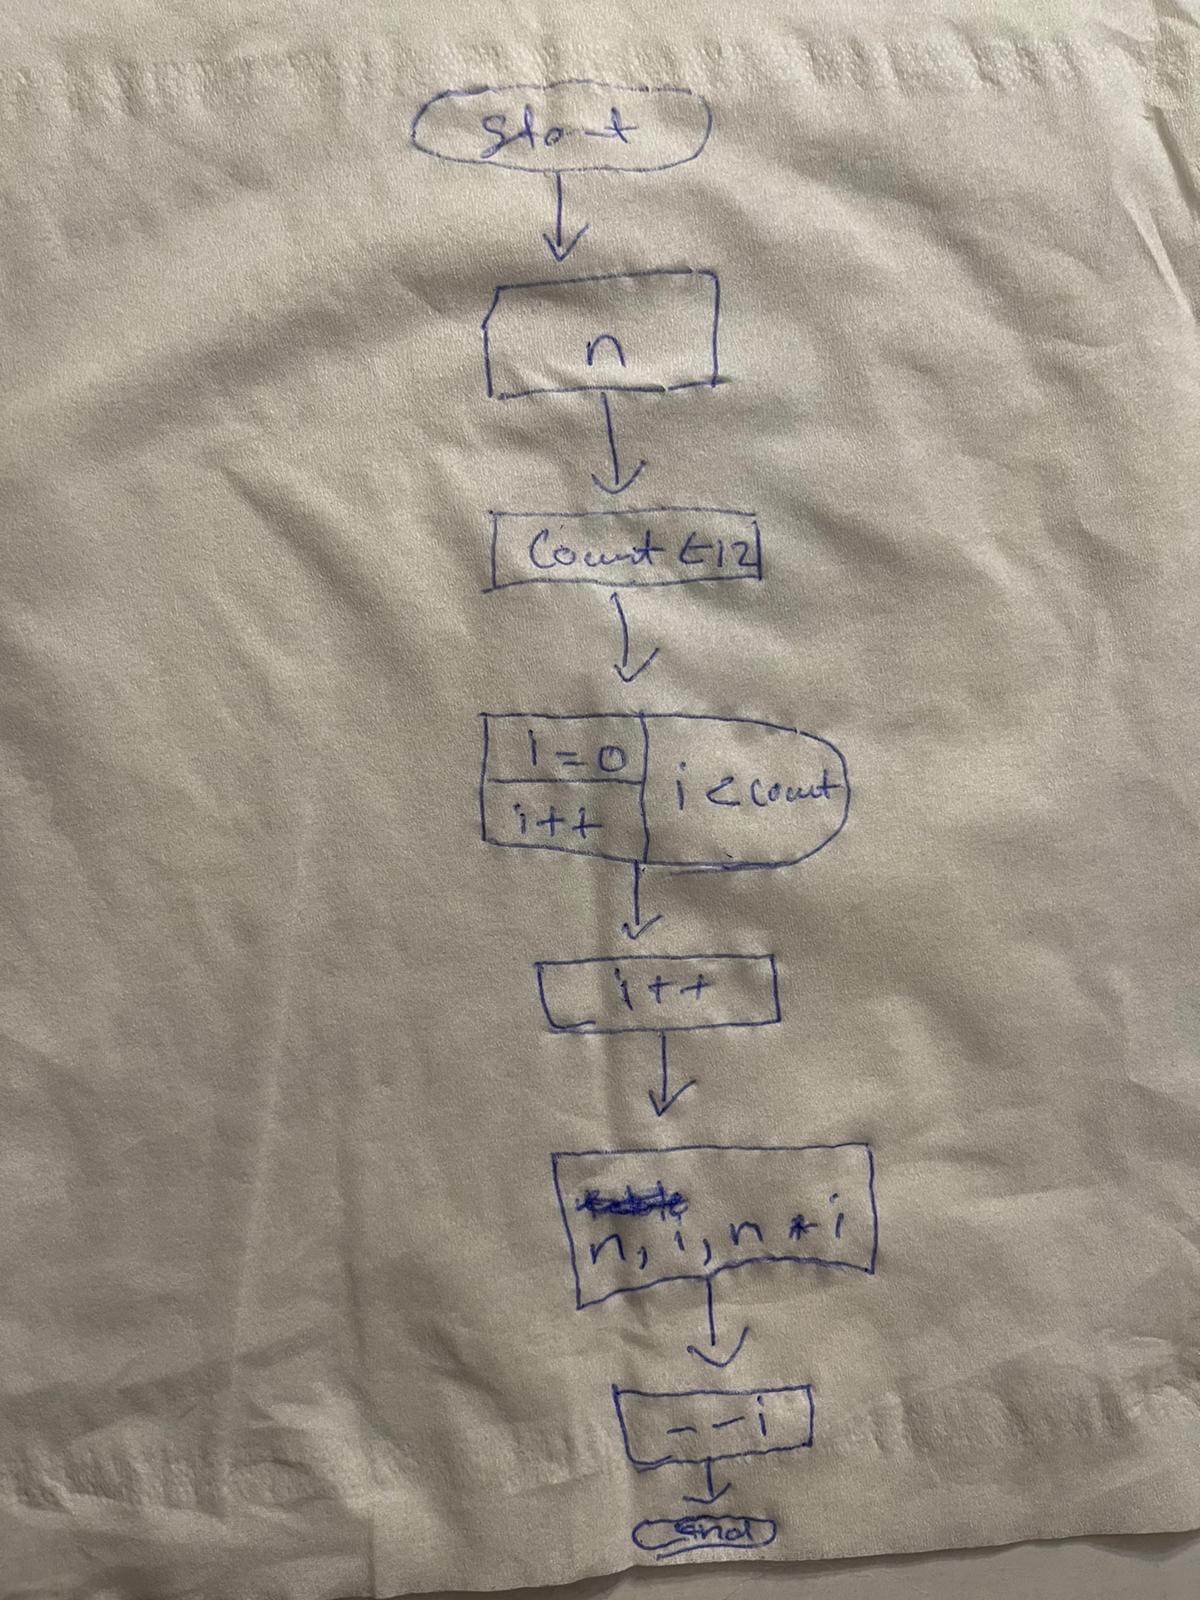 Start
n
Count ← 12
i = 0
i++
i < count
i++
n, i, n * i
--i
End